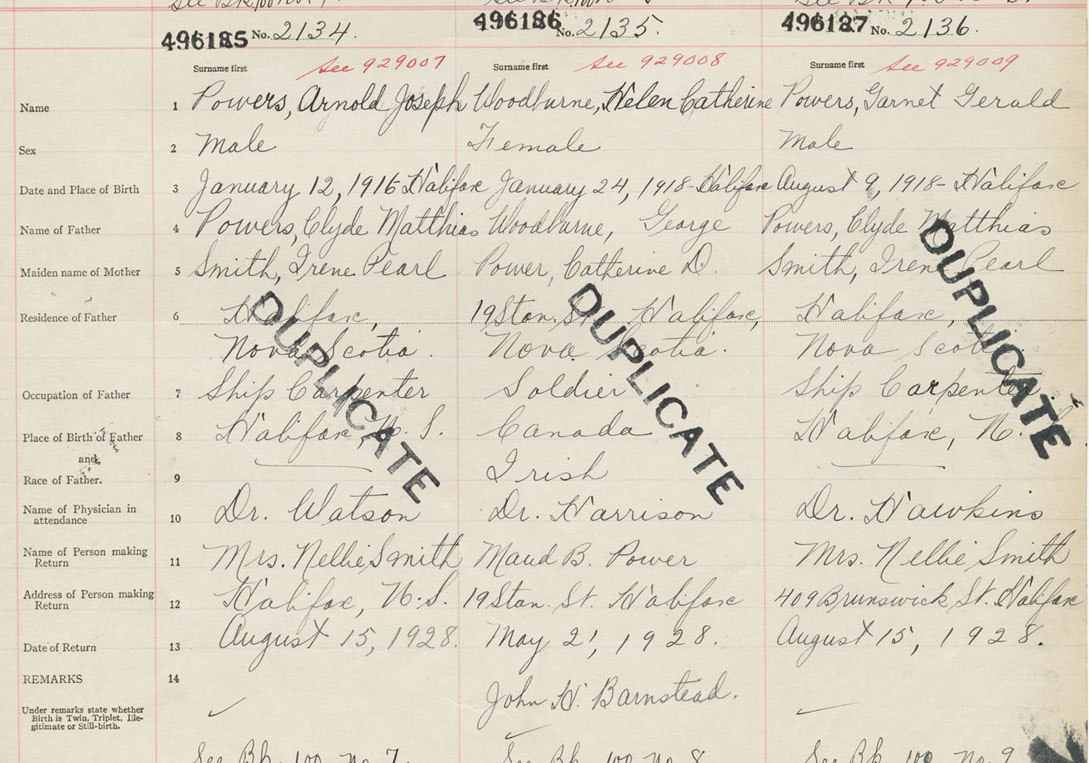 See Bk 100 No
496185 No. 2134. 496186 No. 2135. 496187 No. 2136.
Surname first See 929007 Surname first See 929008 Surname first See 929009
Name 1 Powers, Arnold Joseph Woodburne, Helen Catherine Powers, Garnet Gerald
Sex 2 Male Female Male
Date and Place of Birth 3 January 12, 1916 Halifax January 24, 1918 - Halifax August 9, 1918 - Halifax
Name of Father 4 Powers, Clyde Matthias Woodburne, George Powers, Clyde Matthias
Maiden name of Mother 5 Smith, Irene Pearl Power, Catherine D. Smith, Irene Pearl
Residence of Father 6 Halifax, 19 Stan. St. Halifax, Halifax,
Nova Scotia. Nova Scotia. Nova Scotia
Occupation of Father 7 Ship Carpenter Soldier Ship Carpenter
Place of Birth of Father 8 Halifax, N. S. Canada Halifax, N.
and
Race of Father. 9 Irish
DUPLICATE DUPLICATE DUPLICATE
Name of Physician in
attendance 10 Dr. Watson Dr. Harrison Dr. Hawkins
Name of Person making
Return 11 Mrs. Nellie Smith Maud B. Power Mrs. Nellie Smith
Address of Person making
Return 12 Halifax, N.S. 19 Stan. St. Halifax 409 Brunswick St. Halifax
Date of Return 13 August 15, 1928. May 21, 1928. August 15, 1928.
REMARKS 14 John H. Barnstead.
Under remarks state whether
Birth is Twin, Triplet, Ille-
gitimate or Still-birth.
See Bk 100 No 7 See Bk 100 No 8 See Bk 100 No. 9